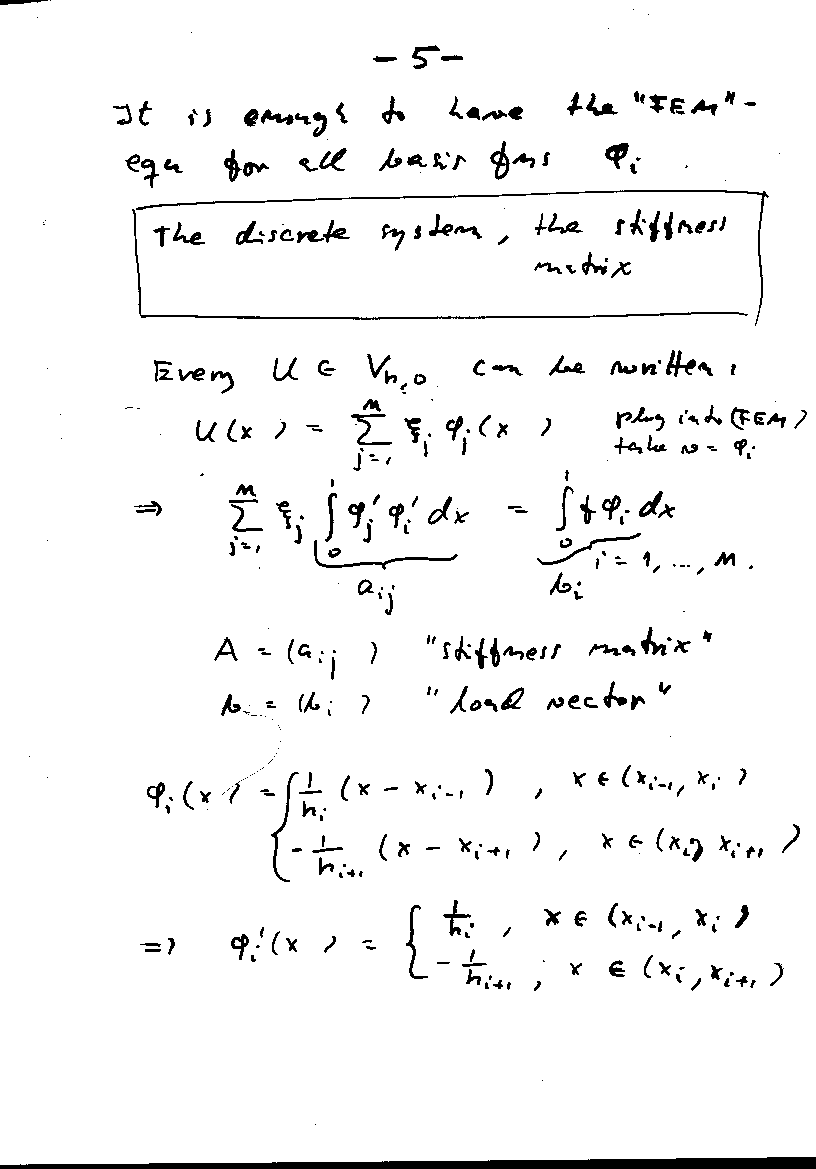 - 5 -
It is enough to have the "FEM"-
eqn for all basis fns φᵢ.
The discrete system, the stiffness
matrix
Every U ∈ V_{h,0} can be written:
U(x) = ∑_{j=1}^{M} ξⱼ φⱼ(x) plug into (FEM)
take v = φᵢ
⇒ ∑_{j=1}^{M} ξⱼ ∫₀¹ φⱼ′ φᵢ′ dx = ∫₀¹ f φᵢ dx
a_{ij} bᵢ i = 1, ..., M.
A = (a_{ij}) "stiffness matrix"
b = (bᵢ) "load vector"
φᵢ(x) = { 1/hᵢ (x - x_{i-1}), x ∈ (x_{i-1}, xᵢ)
- 1/h_{i+1} (x - x_{i+1}), x ∈ (xᵢ, x_{i+1})
⇒ φᵢ′(x) = { 1/hᵢ, x ∈ (x_{i-1}, xᵢ)
- 1/h_{i+1}, x ∈ (xᵢ, x_{i+1})